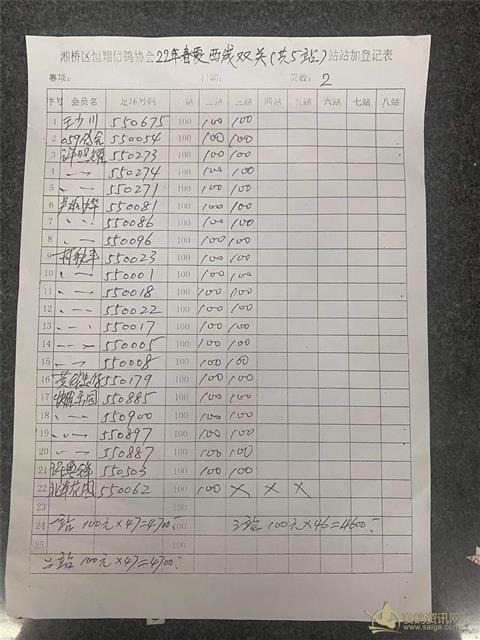 湘桥区恒翔信鸽协会22年春季西线双关(共5站)站站加登记表
赛项: 日期: 页数: 2
序号 会员名 足环号码 一站 二站 三站 四站 五站 六站 七站 八站
1 王少川 550675 100 100 100
2 550054 100 100 100
3 550273 100 100 100
4 〃 550274 100 100 100
5 〃 550271 100 100 100
6 550081 100 100 100
7 〃 550086 100 100 100
8 〃 550096 100 100 100
9 550023 100 100 100
10 〃 550001 100 100 100
11 〃 550018 100 100 100
12 〃 550022 100 100 100
13 〃 550017 100 100 100
14 〃 550005 100 100 100
15 〃 550008 100 100 100
16 550179 100 100 100
17 550885 100 100 100
18 〃 550900 100 100 100
19 〃 550897 100 100 100
20 〃 550887 100 100 100
21 550503 100 100 100
22 550062 100 100 × × ×
23 100
24 一站 100元×47=4700 100 三站 100元×46=4600
25 100
二站 100元×47=4700
赛鸽资讯网
www.saige.com